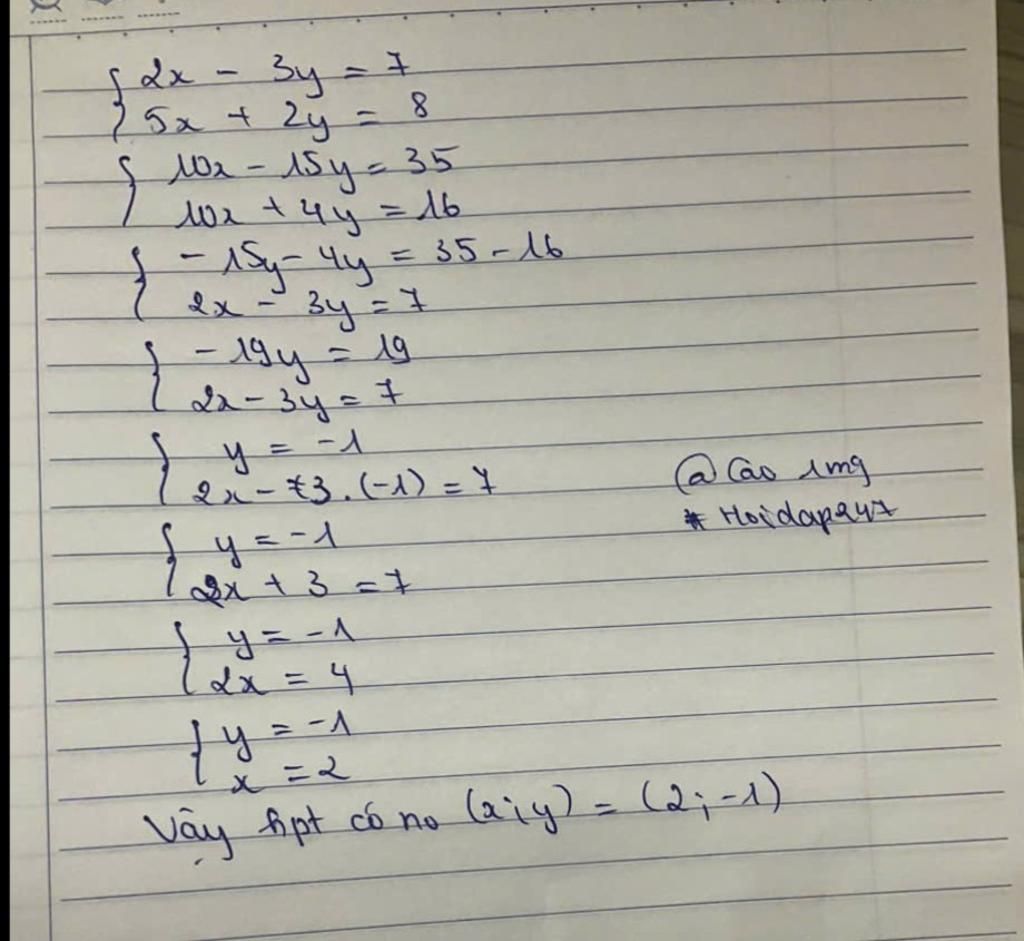 { 2x - 3y = 7
5x + 2y = 8
{ 10x - 15y = 35
10x + 4y = 16
{ - 15y - 4y = 35 - 16
2x - 3y = 7
{ - 19y = 19
2x - 3y = 7
{ y = -1
2x - 3 . (-1) = 7
@ Cào 1mg
* Hoidap247
{ y = -1
2x + 3 = 7
{ y = -1
2x = 4
{ y = -1
x = 2
Vậy hpt có no (x;y) = (2;-1)